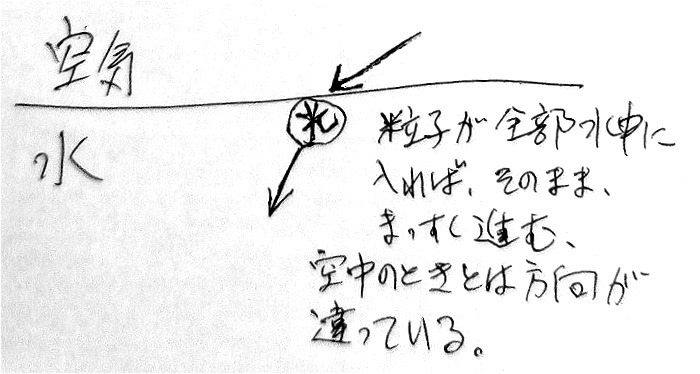 空気
水
光
粒子が全部水中に
入れば、そのまま、
まっすぐ進む、
空中のときとは方向が
違っている。